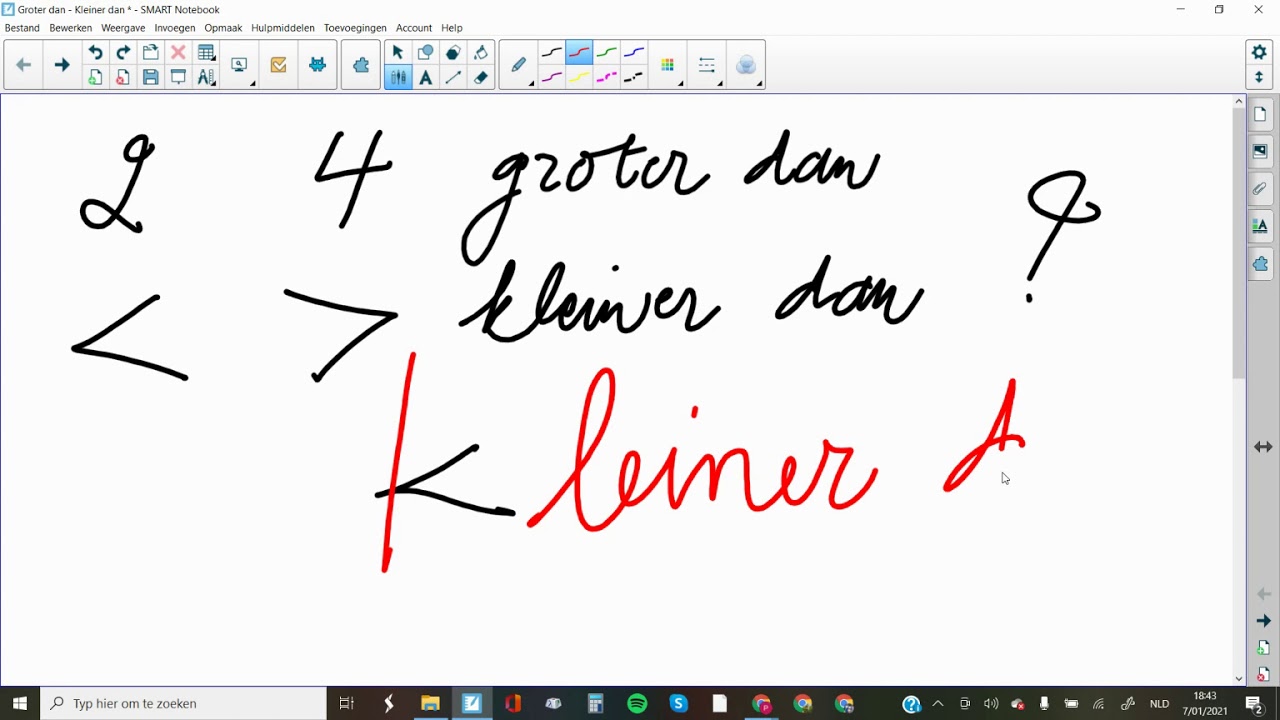 Groter dan - Kleiner dan * - SMART Notebook
Bestand Bewerken Weergave Invoegen Opmaak Hulpmiddelen Toevoegingen Account Help
2 4 groter dan
kleiner dan ?
< >
kleiner d
Typ hier om te zoeken
NLD
18:43
7/01/2021
2